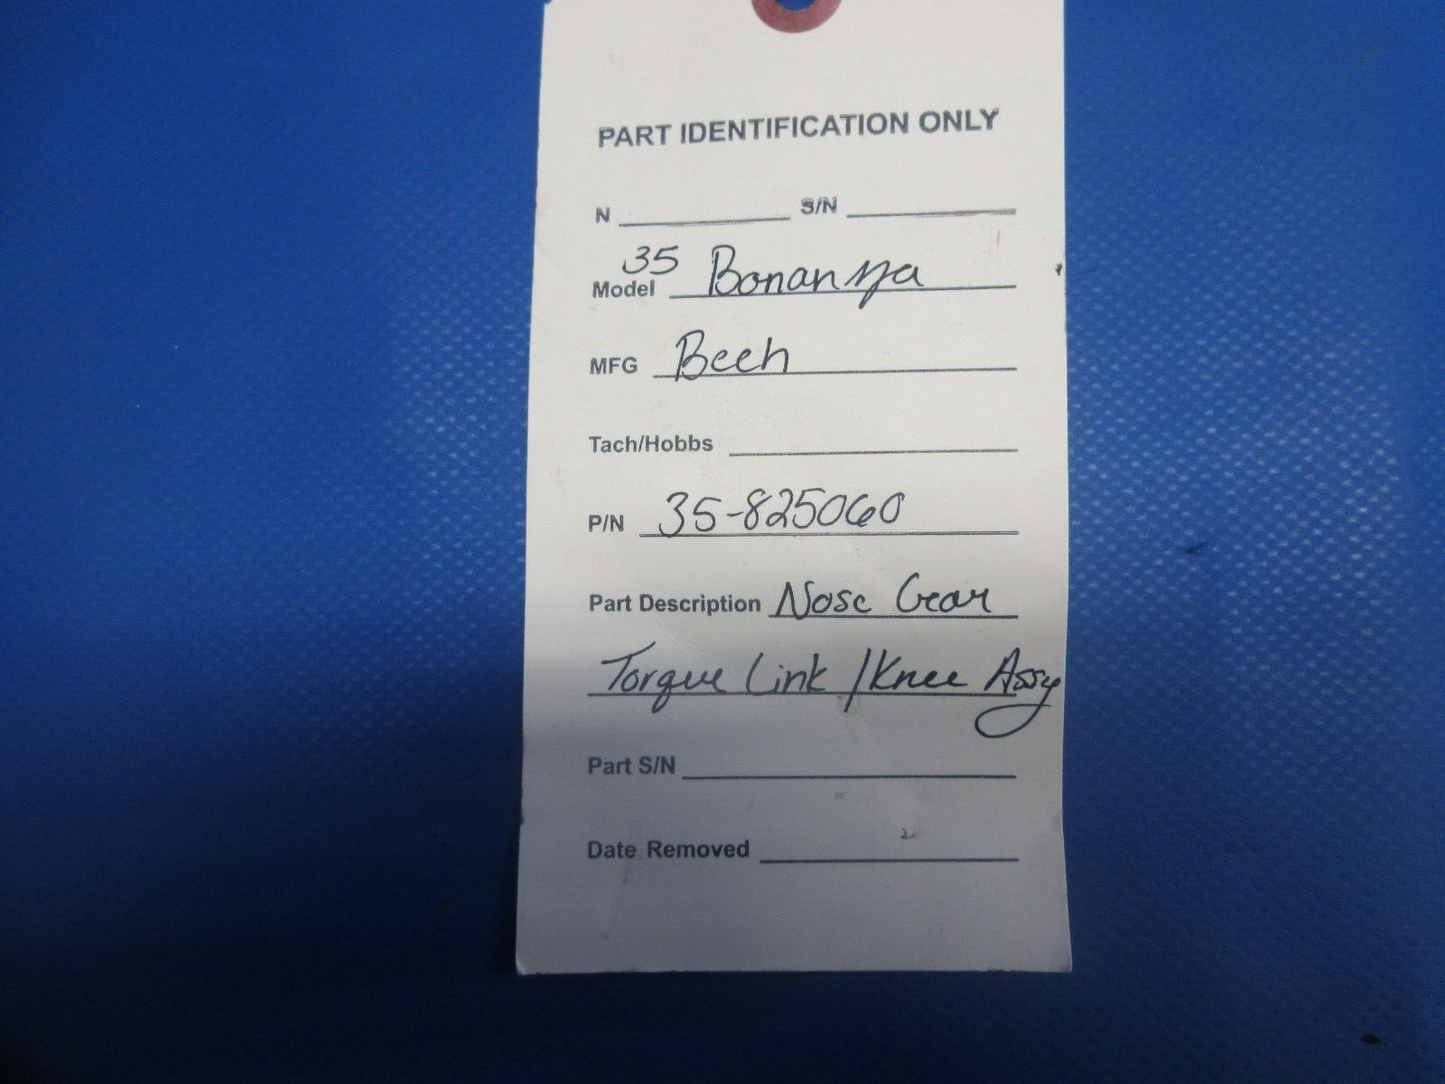 PART IDENTIFICATION ONLY
N S/N
Model 35 Bonanza
MFG Beech
Tach/Hobbs
P/N 35-825060
Part Description Nose Gear
Torque Link / Knee Assy
Part S/N
Date Removed